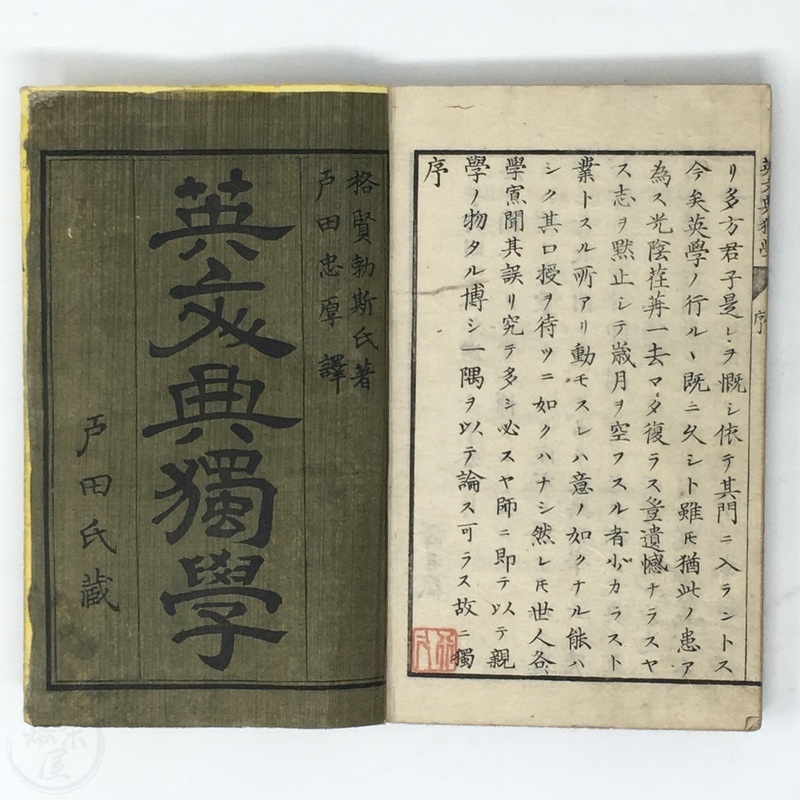 格賢勃斯氏著
戸田忠厚譯
英文典獨學
戸田氏藏
序
學ノ物タル博シ一隅ヲ以テ論ス可ラス故ニ獨
學寡聞其誤リ究テ多シ必スヤ師ニ即テ以テ親
シク其口授ヲ待ツニ如クハナシ然レ𪜈世人各
業トスル所アリ動モスレハ意ノ如クナル能ハ
ス志ヲ黙止シテ歳月ヲ空フスル者少カラスト
為ス光陰荏苒一去マタ復ラス豈遺憾ナラスヤ
今矣英學ノ行ルヽ既ニ久シト雖𪜈猶此ノ患ア
リ多方君子是レヲ慨シ依テ其門ニ入ラントス
英文典獨學
序